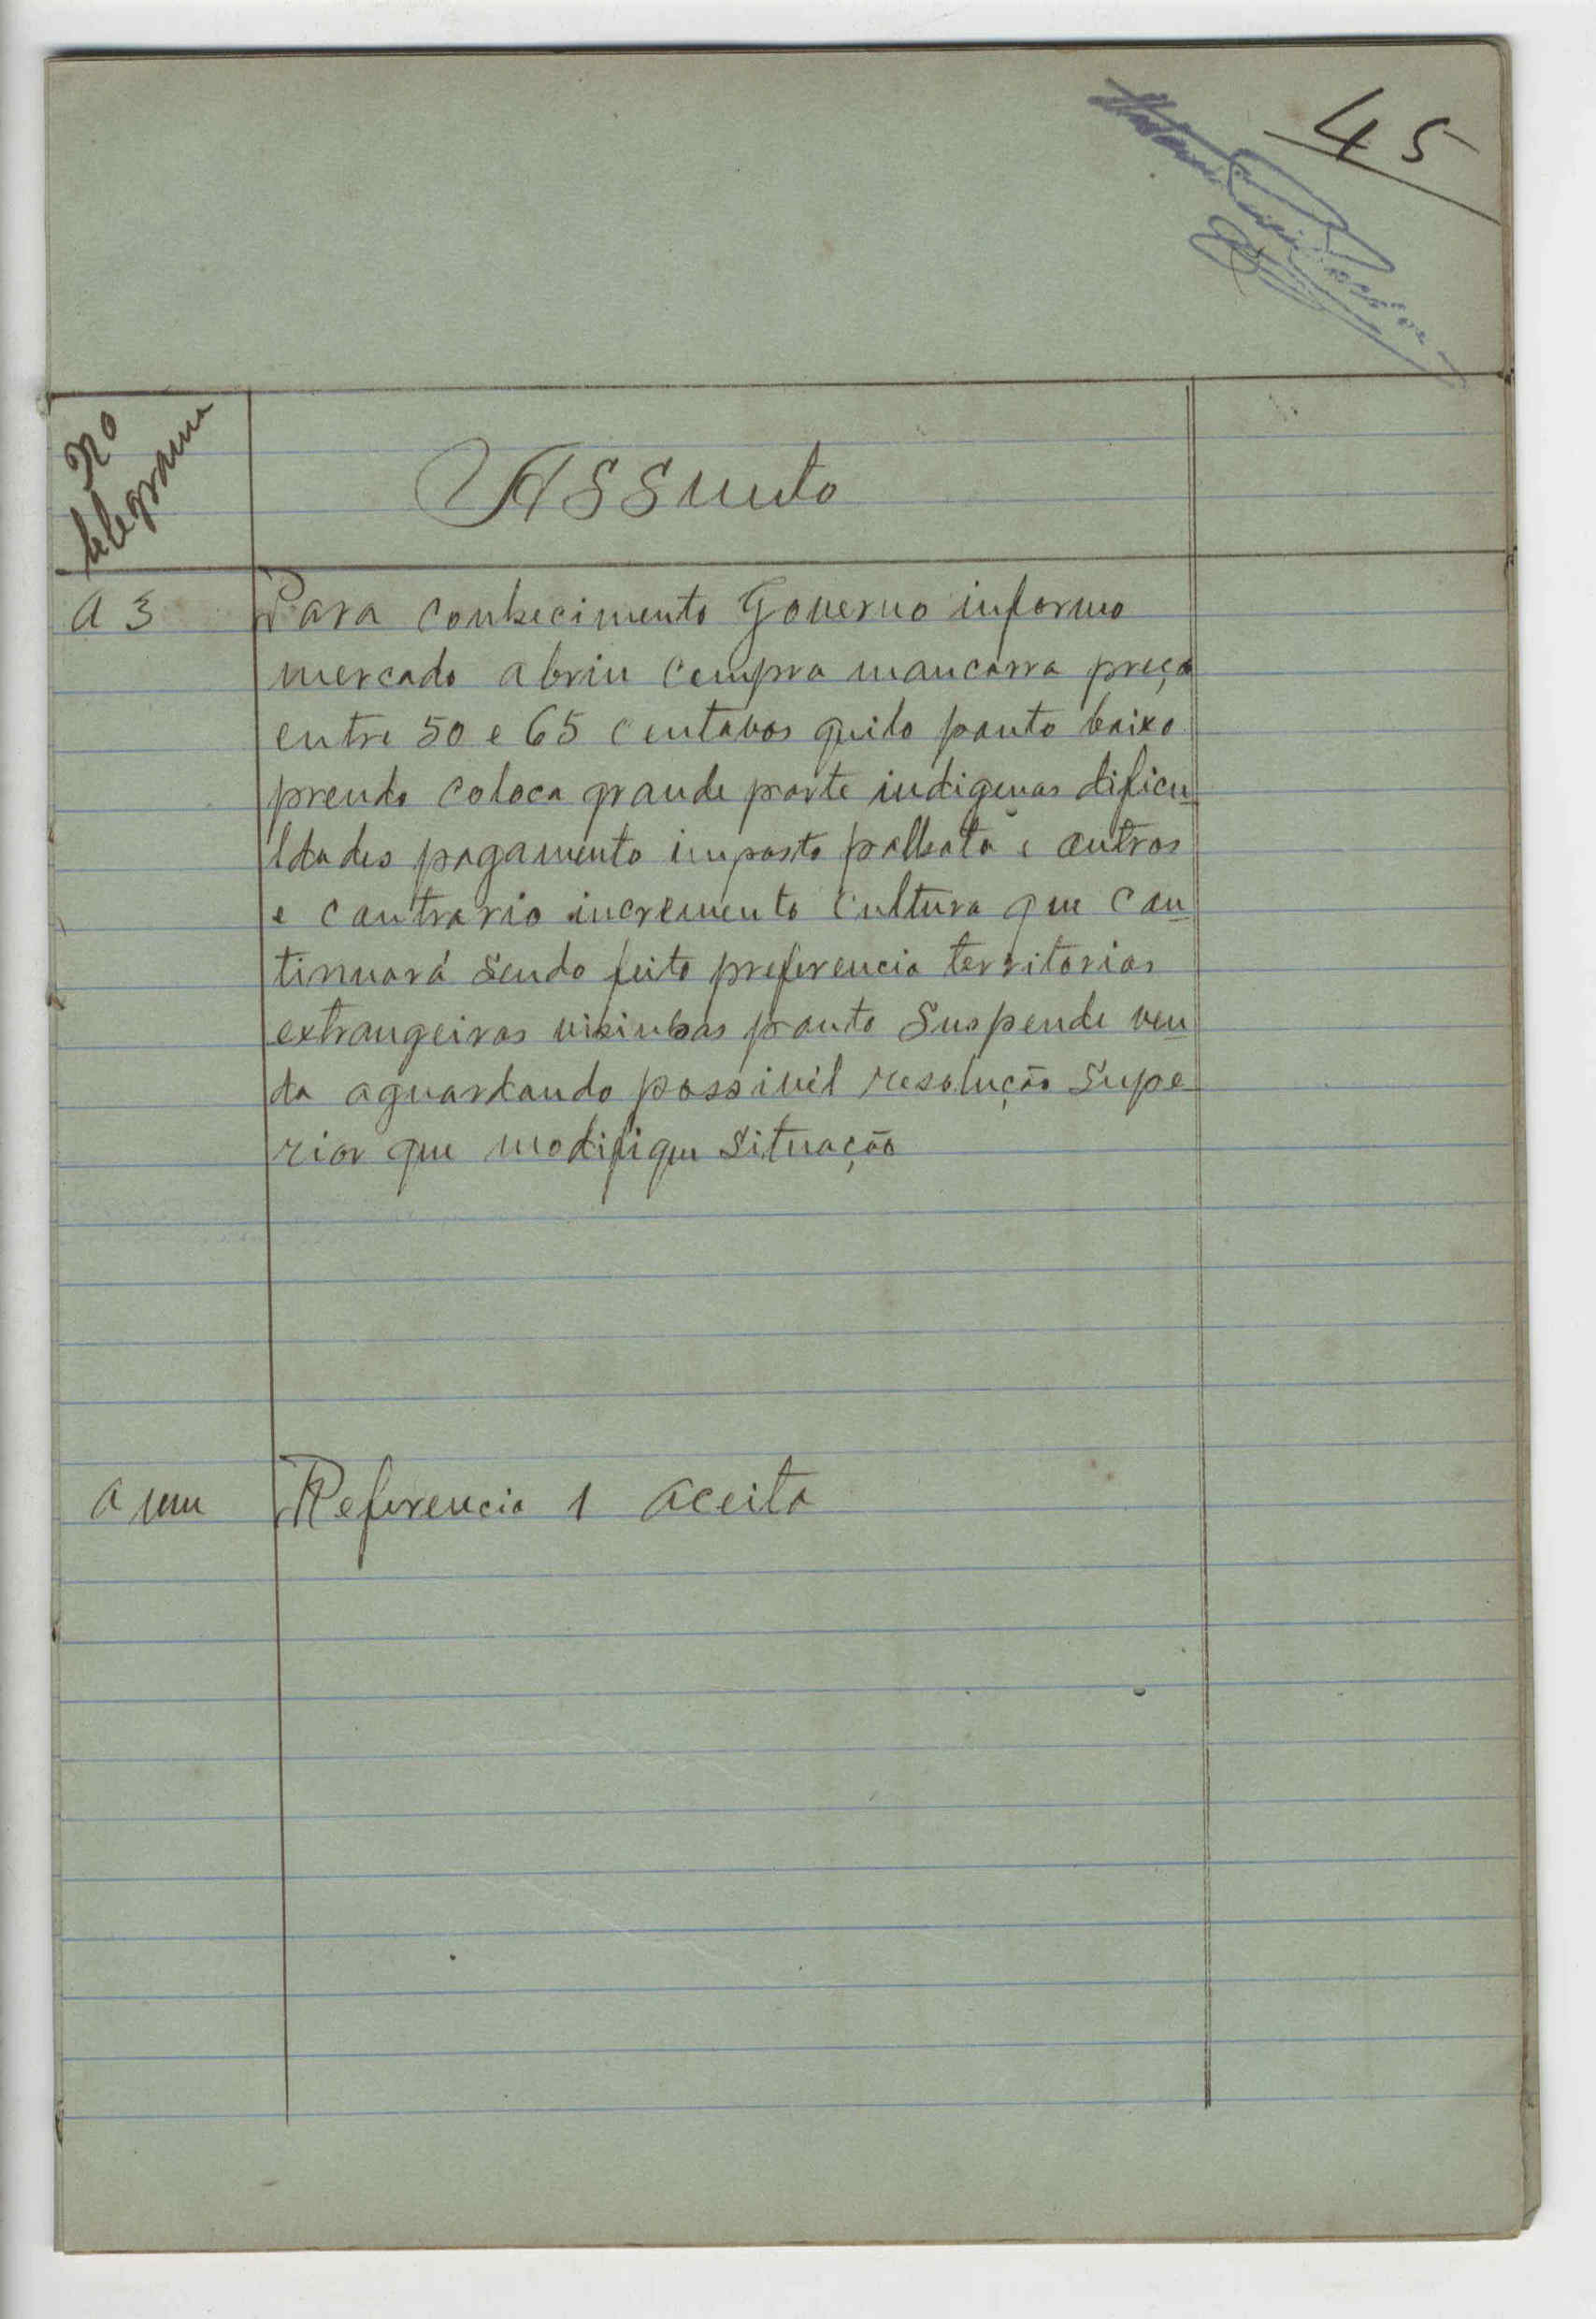 45
No
telegrama
Assunto
a 3
Para conhecimento Governo informo
mercado abriu compra mancarra preço
entre 50 e 65 centavos quilo ponto baixo
prendo coloca grande parte indigenas dificu
ldades pagamento imposto palhota e outros
e contrario incremento cultura que con
tinuará sendo feito preferencia territorios
extrangeiros visinhos ponto Suspende ven
da aguardando possivel resolução Supe
rior que modifique Situação
a um
Referencia 1 aceito